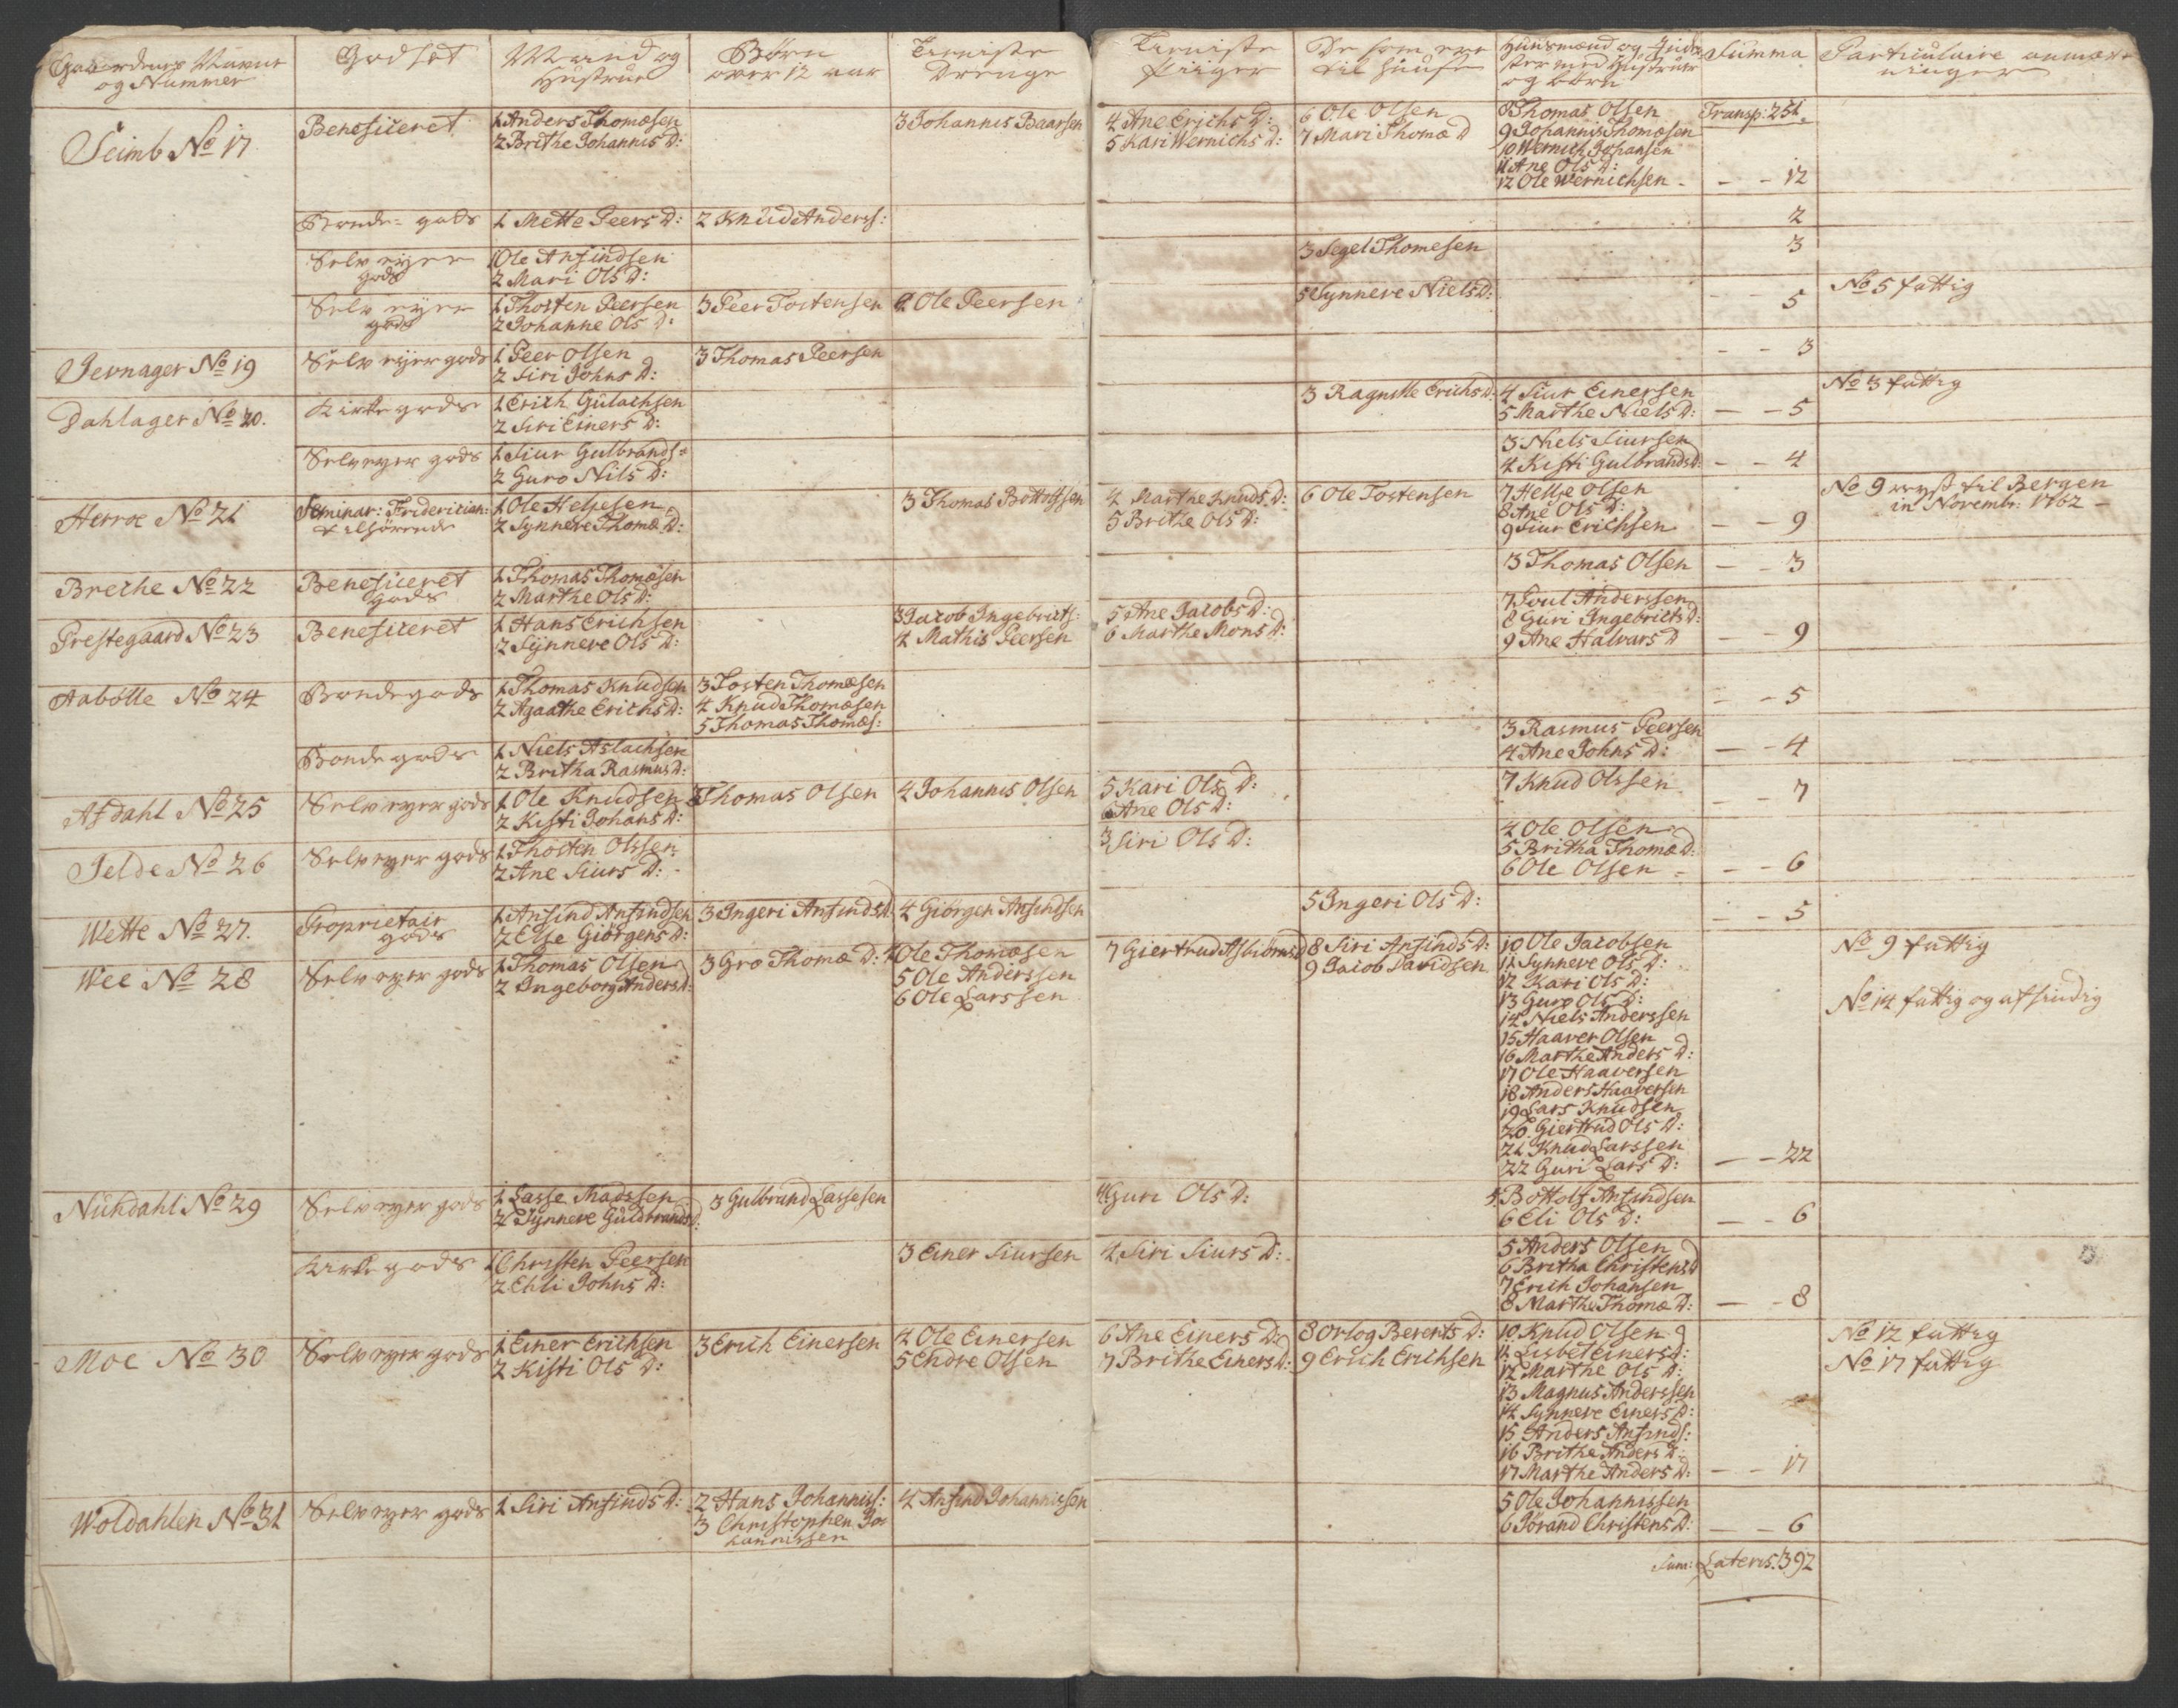 Gaardenes Navne og Nummer | Godset | Mand og Hustrue | Børn over 12 aar | Tieniste Drenge | Tieniste Piiger | De som ere til Huuse | Huusmænd og Inderster med Hustruer og børn | Summa | Particulaire anmærkninger
Seimb No 17 | Beneficeret | 1 Anders Thomæsen | 3 Johannis Baarsen | 4 Ane Erichs D: | 6 Ole Olsen | 8 Thomas Olsen | Transp: 251.
2 Brithe Johannis D: | 5 Kari Wernichs D: | 7 Mari Thomæ D | 9 Johannis Thomæsen
10 Wernich Johansen
11 Ane Ols D:
12 Ole Wernichsen - | - - 12
Bonde-gods | 1 Mette Peers D: | 2 Knud Anderss: | 2
Selv eyer gods | 1 Ole Ansindsen | 3 Segel Thomesen | 3
2 Mari Ols D:
Selv eyer gods | 1 Thosten Peersen | 3 Peer Tostensen | 4 Ole Peersen | 5 Synneve Niels D: | - - 5 | No 5 fattig
2 Johanne Ols D:
Jernager No 19 | Selv eyer gods | 1 Peer Olsen | 3 Thomas Peersen | - - 3
2 Siri Johns D:
Dahlager No 20. | Kirke gods | 1 Erich Gulachsen | 3 Ragnille Erichs D: | 4 Siur Einersen | No 3 fattig
2 Siri Einers D: | 5 Marthe Niels D: | - - 5
Selveyer gods | 1 Siur Gulbrands: | 3 Niels Siursen
2 Guro Nils D: | 4 Kisti Gulbrands D: | - - 4
Herroe No 21 | Seminar: Fridericien: tilhørende | 1 Ole Heljesen | 3 Thomas Bottolfsen | 4 Marthe Knuds D: | 6 Ole Tostensen | 7 Helje Olsen | No 9 reyst til Bergen
2 Synneve Thomæ D: | 5 Brithe Ols D: | 8 Ane Ols D: | in Novembr: 1762 -
9 Siur Erichsen | - - 9
Breche No 22 | Beneficeret gods | 1 Thomas Thomæsen | 3 Thomas Olsen | - - 3
2 Marthe Ols D:
Prestegaard No 23 | Beneficeret | 1 Hans Erichsen | 3 Jacob Ingebricts: | 5 Ane Jacobs D: | 7 Poul Anderssen
2 Synneve Ols D: | 4 Mathis Peersen | 6 Marthe Mons D: | 8 Guri Ingebricts D:
9 Ane Halvars D | - - 9
Aabölle No 24 | Bondegods | 1 Thomas Knudsen | 3 Tosten Thomæsen | - - 5
2 Agaathe Erichs D: | 4 Knud Thomæsen
5 Thomas Thomæs:
Bondegods | 1 Niels Aslachsen | 3 Rasmus Peersen
2 Britha Rasmus D: | 4 Ane Johns D: | - - 4
Afdahl No 25 | Selveyergods | 1 Ole Knudsen | 3 Thomas Olsen | 4 Johannis Olsen | 5 Kari Ols D: | 7 Knud Olssen | - - 7
2 Kisti Johans D: | 6 Ane Ols D:
Jelde No 26 | Selveyer gods | 1 Thosten Olssen | 3 Siri Ols D: | 4 Ole Olsen
2 Ane Siurs D: | 5 Britha Thomæ D:
6 Ole Olsen | - - 6
Wette No 27. | Proprietair gods | 1 Ansind Ansindsen | 3 Ingeri Ansinds D: | 4 Giörgen Ansindsen | 5 Ingeri Ols D: | - - 5
2 Else Giörgens D:
Wee No 28 | Selveyer gods | 1 Thomas Olsen | 3 Gro Thomæ D: | 4 Ole Thomæsen | 7 Giertrud Asbiörns D | 8 Siri Ansinds D: | 10 Ole Jacobsen | No 9 fattig
2 Ingeborg Anders D: | 5 Ole Anderssen | 9 Jacob Davidsen | 11 Synneve Ols D:
6 Ole Larssen | 12 Kari Ols D:
13 Guro Ols D: | No 14 fattig og afsindig
14 Niels Anderssen
15 Haaver Olsen
16 Marthe Anders D:
17 Ole Haaversen
18 Anders Haaversen
19 Lars Knudsen
20 Giertrud Ols D:
21 Knud Larssen
22 Guri Lars D: | - - 22
Nundahl No 29 | Selveyer gods | 1 Lasse Madssen | 3 Gulbrand Lassesen | 4 Guri Ols D: | 5 Bottolf Ansindsen
2 Synneve Guldbrands D: | 6 Eli Ols D: | - - 6
Kirke gods | 1 Christen Peersen | 3 Einer Siursen | 4 Siri Siurs D: | 5 Anders Olsen
2 Ehli Johns D: | 6 Britha Christens D
7 Erich Johansen
8 Marthe Thomæ D: | - - 8
Moe No 30 | Selveyer gods | 1 Einer Erichsen | 3 Erich Einersen | 4 Ole Einersen | 6 Ane Einers D: | 8 Orlog Berents D: | 10 Knud Olsen | No 12 fattig
2 Kisti Ols D: | 5 Endre Olsen | 7 Brithe Einers D: | 9 Erich Erichsen | 11 Lisbet Einers D: | No 17 fattig
12 Marthe Ols D:
13 Magnus Anderssen
14 Synneve Einers D:
15 Anders Ansinds:
16 Brithe Anders D:
17 Marthe Anders D: | - - 17
Woldahlen No 31 | Selveyer gods | 1 Siri Ansinds D: | 2 Hans Johanniss: | 4 Ansind Johannissen | 5 Ole Johannissen
3 Christophen Johannissen | 6 Jörand Christens D: | - - 6
Sum: Lateris: 392